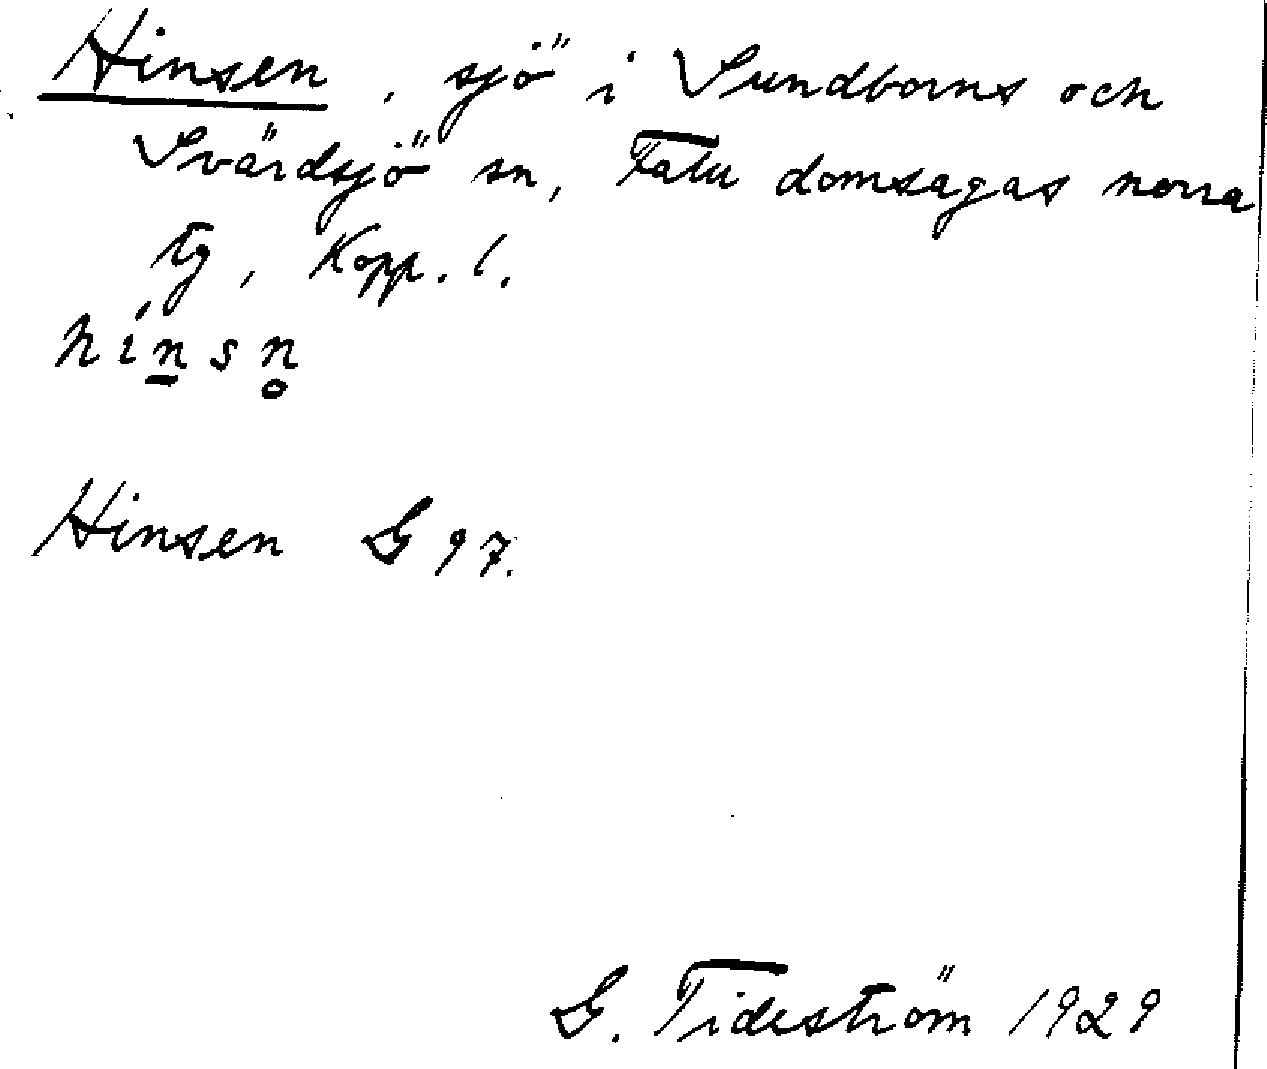 Hinsen, sjö i Sundborns och
Svärdsjö sn, Falu domsagas norra
tg, Kopp. l.
hínsn̥
Hinsen G 97.
G. Tideström 1929